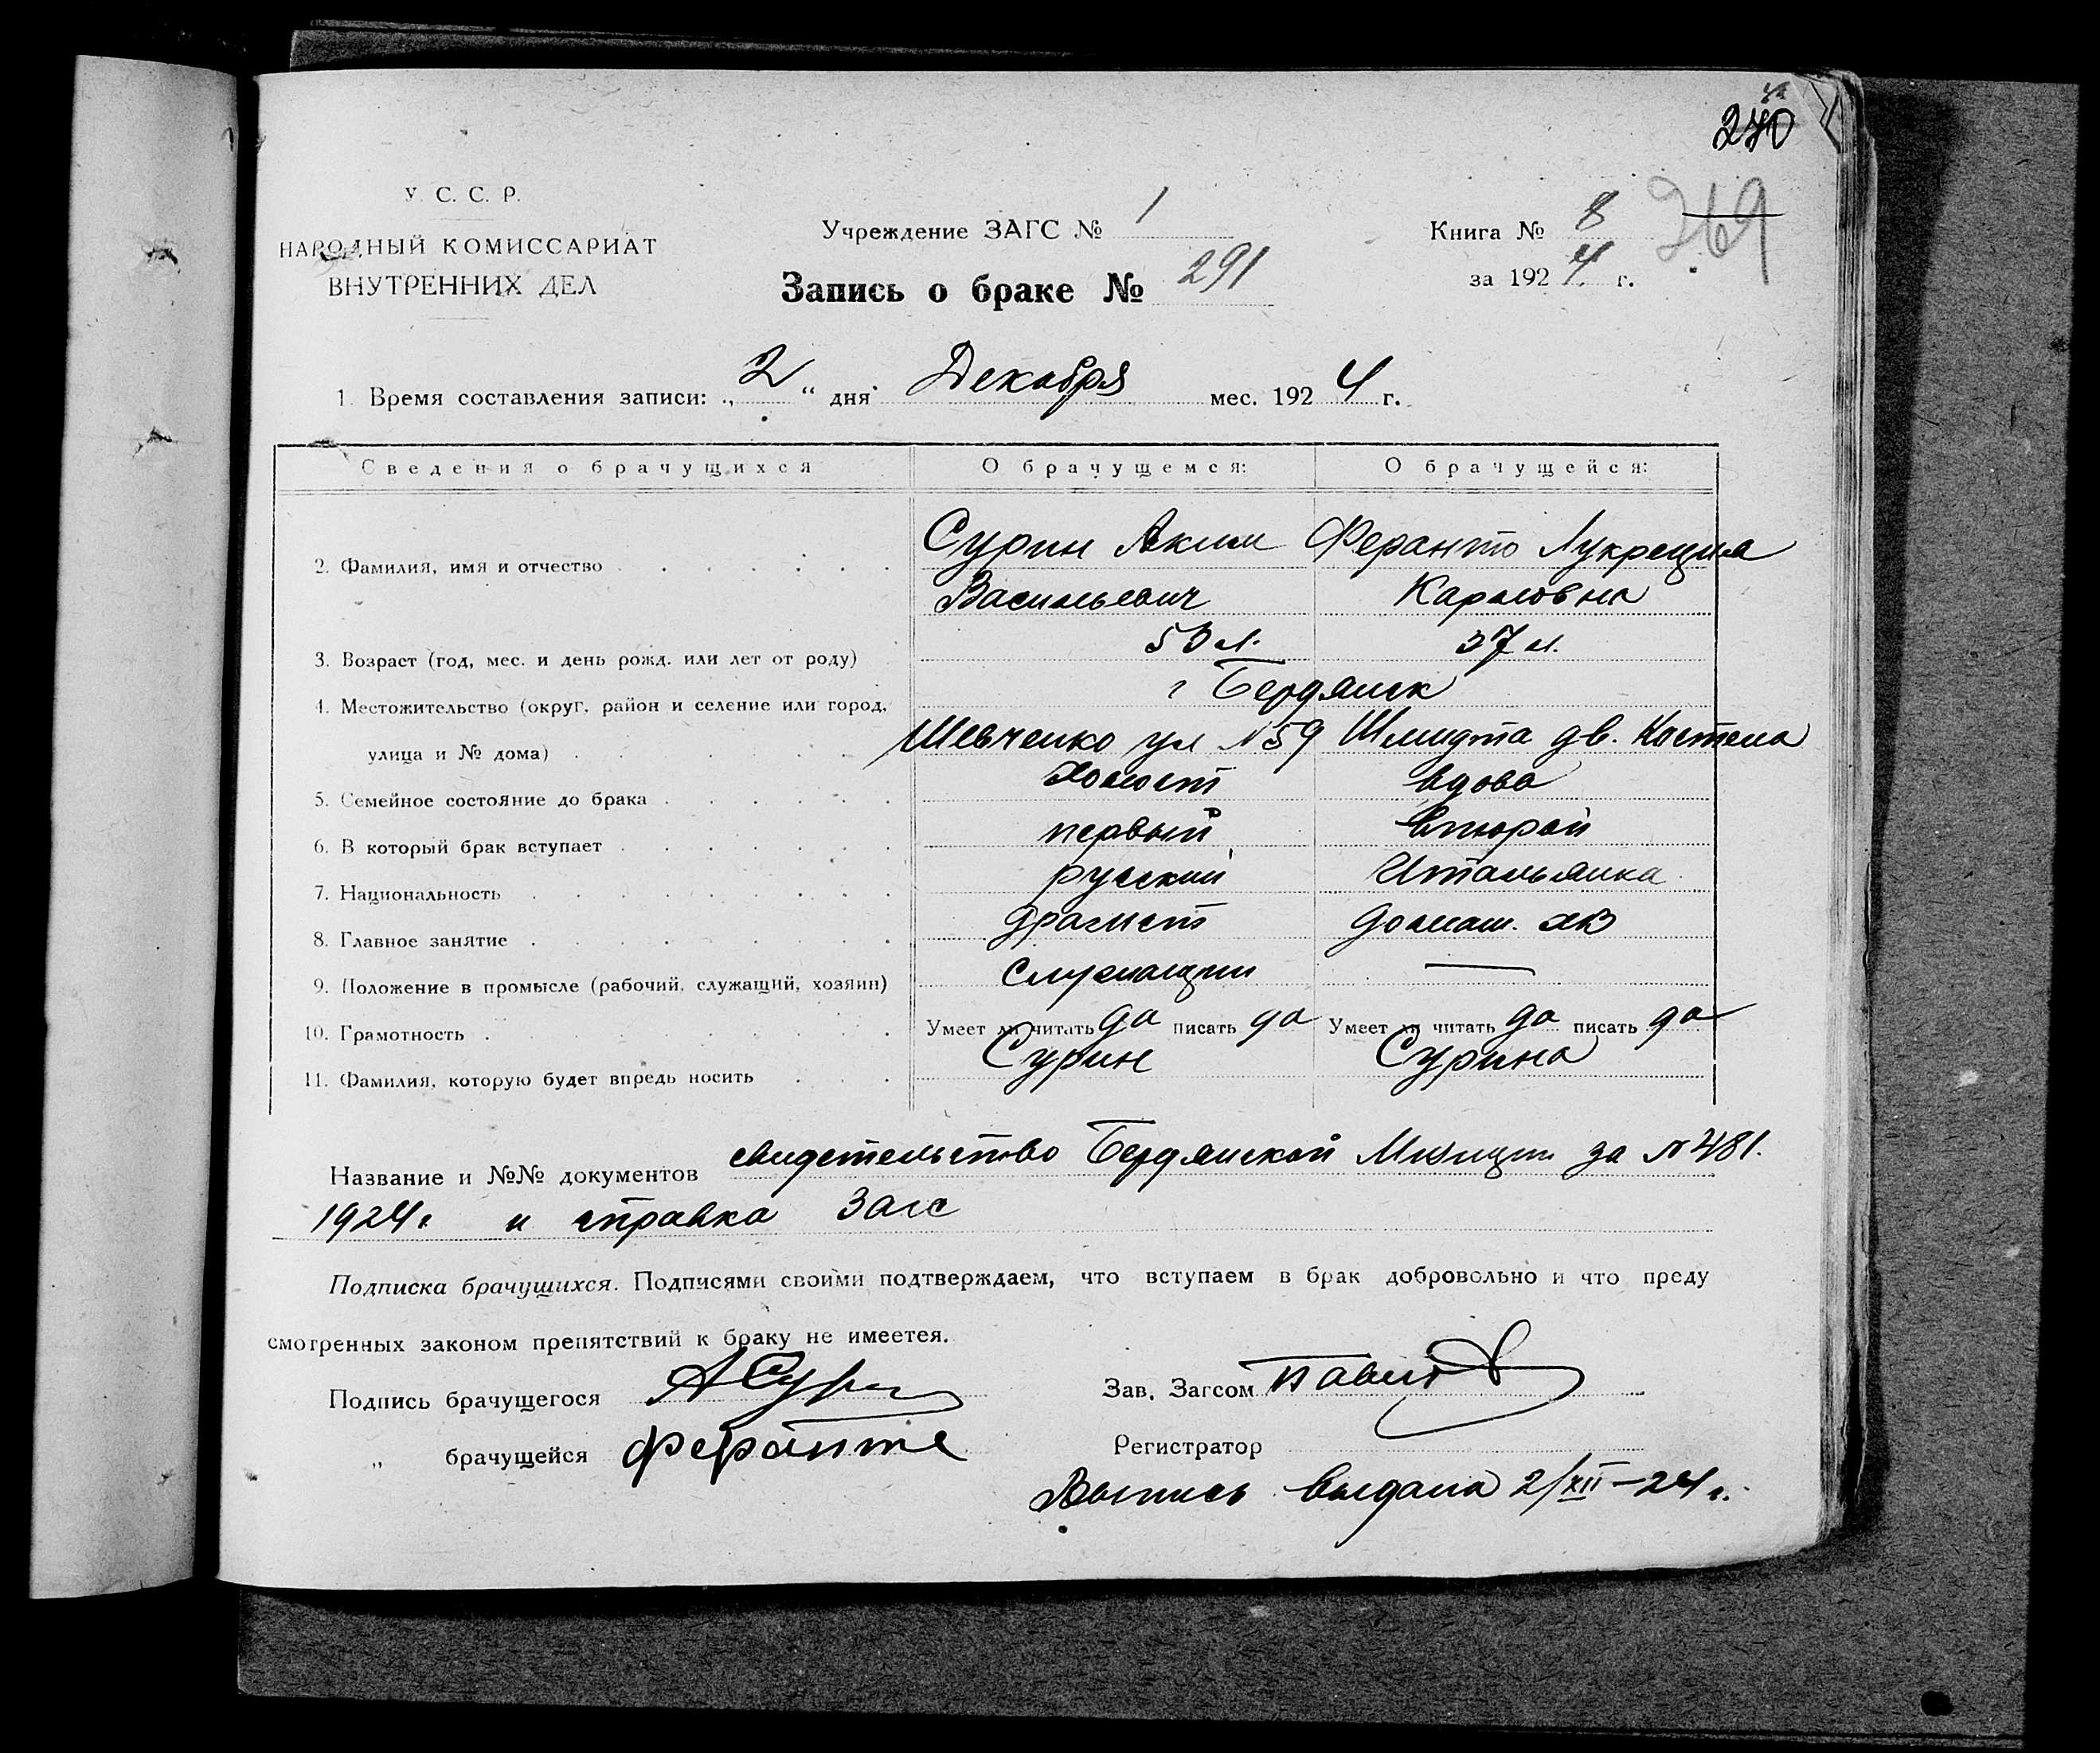 240
У. С. С. Р.
НАРОДНЫЙ КОМИССАРИАТ
ВНУТРЕННИХ ДЕЛ
Учреждение ЗАГС № 1
Запись о браке № 291
Книга № 8
269
за 1924 г.
1. Время составления записи: „2“ дня Декабря мес. 1924 г.
Сведения о брачущихся О брачущемся: О брачущейся:
2. Фамилия, имя и отчество Сурин Аким Феранто Лукреция
Васильевич Карловна
3. Возраст (год, мес. и день рожд. или лет от роду) 50 л. 37 л.
4. Местожительство (округ, район и селение или город, г Бердянск
улица и № дома) Шевченко ул №59 Шмидта дв. Костела
5. Семейное состояние до брака Холост вдова
6. В который брак вступает первый второй
7. Национальность русский Итальянка
8. Главное занятие домаш. хоз
9. Положение в промысле (рабочий, служащий, хозяин) служащий —
10. Грамотность Умеет ли читать да писать да Умеет ли читать да писать да
11. Фамилия, которую будет впредь носить Сурин Сурина
Название и №№ документов свидетельство Бердянской за № 481.
1924 г и справка Загс
Подписка брачущихся. Подписями своими подтверждаем, что вступаем в брак добровольно и что преду
смотренных законом препятствий к браку не имеетея.
Подпись брачущегося АСури
Зав. Загсом
„ брачущейся Феранте
Регистратор
Выпись выдана 2/XII–24 г.